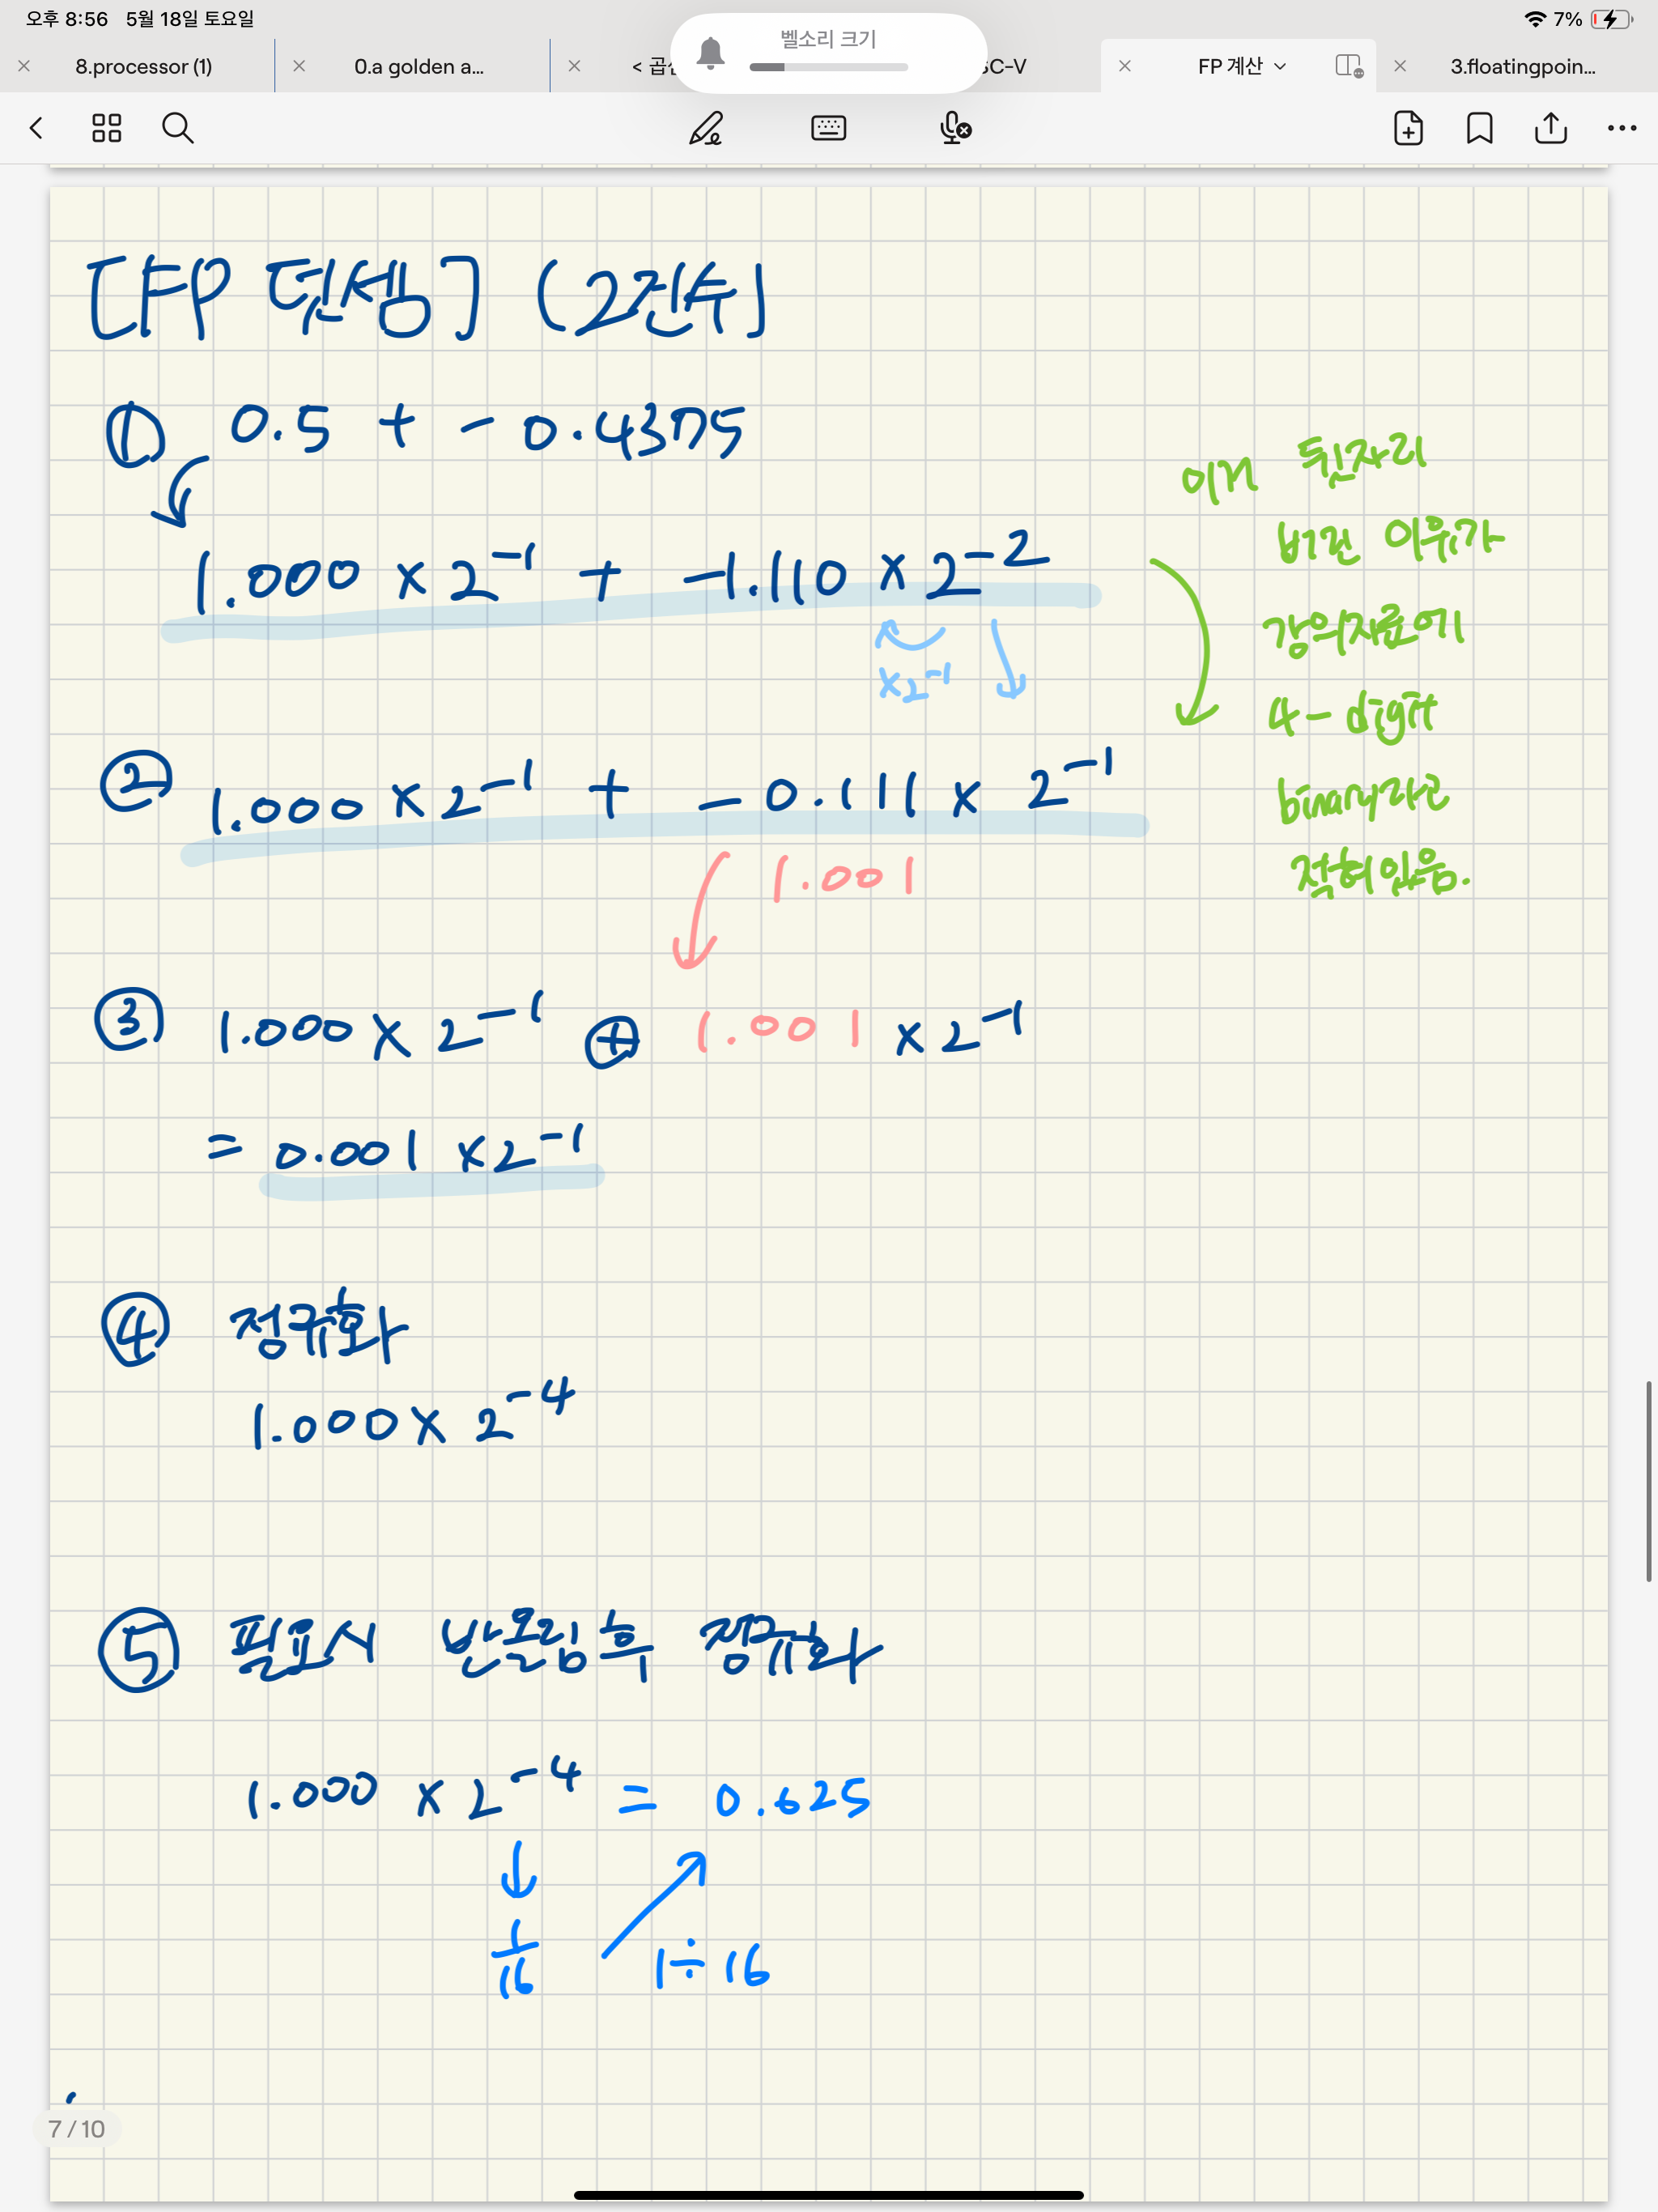 오후 8:56 5월 18일 토요일
벨소리 크기
7%
8.processor (1)
0.a golden a...
< 곱셈
SC-V
FP 계산
3.floatingpoin...
[FP 덧셈] (2진수]
① 0.5 + - 0.4375
1.000 × 2⁻¹ + -1.110 × 2⁻²
×2⁻¹
이거 뒷자리
버린 이유가
강의자료에
4-digit
binary라고
적혀있음.
② 1.000 × 2⁻¹ + - 0.111 × 2⁻¹
1.001
③ 1.000 × 2⁻¹ ⊕ 1.001 × 2⁻¹
= 0.001 × 2⁻¹
④ 정규화
1.000 × 2⁻⁴
⑤ 필요시 반올림후 정규화
1.000 × 2⁻⁴ = 0.625
1/16
1÷16
7/10